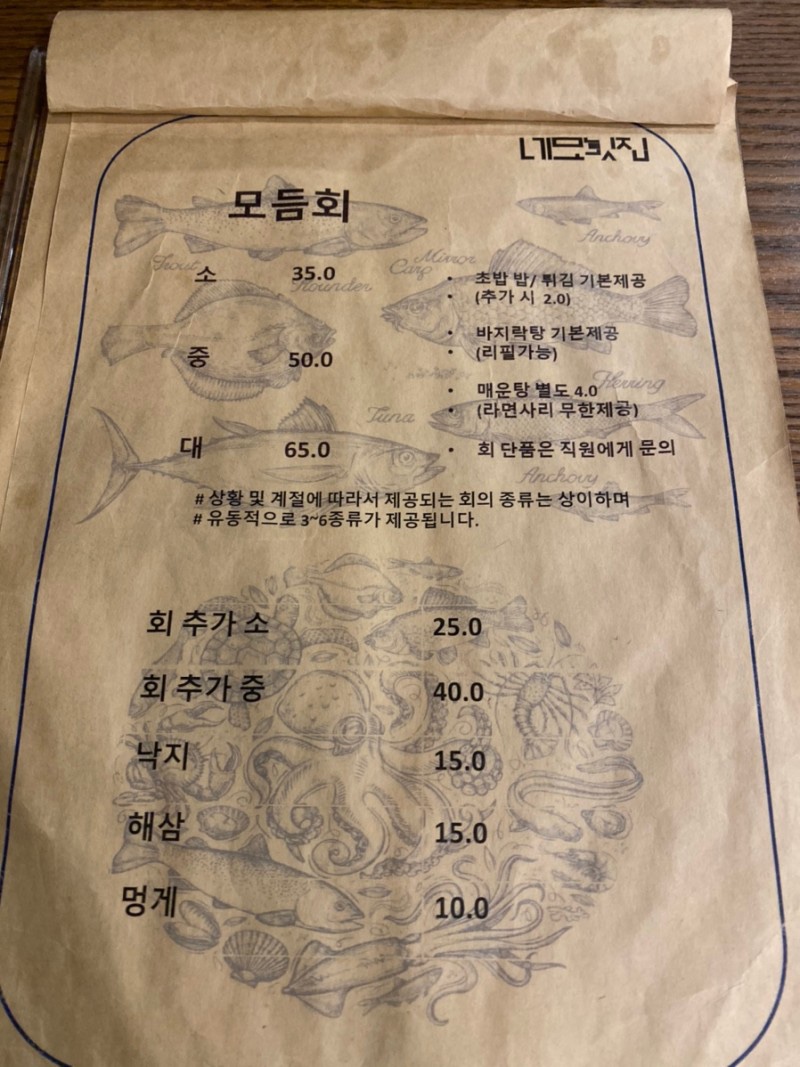 네모횟집
모듬회
Anchovy
Trout
Mirror Carp
Flounder
소 35.0
• 초밥 밥/ 튀김 기본제공
• (추가 시 2.0)
중 50.0
• 바지락탕 기본제공
• (리필가능)
Herring
• 매운탕 별도 4.0
• (라면사리 무한제공)
Tuna
대 65.0
• 회 단품은 직원에게 문의
Anchovy
# 상황 및 계절에 따라서 제공되는 회의 종류는 상이하며
# 유동적으로 3~6종류가 제공됩니다.
회 추가 소 25.0
회 추가 중 40.0
낙지 15.0
해삼 15.0
멍게 10.0